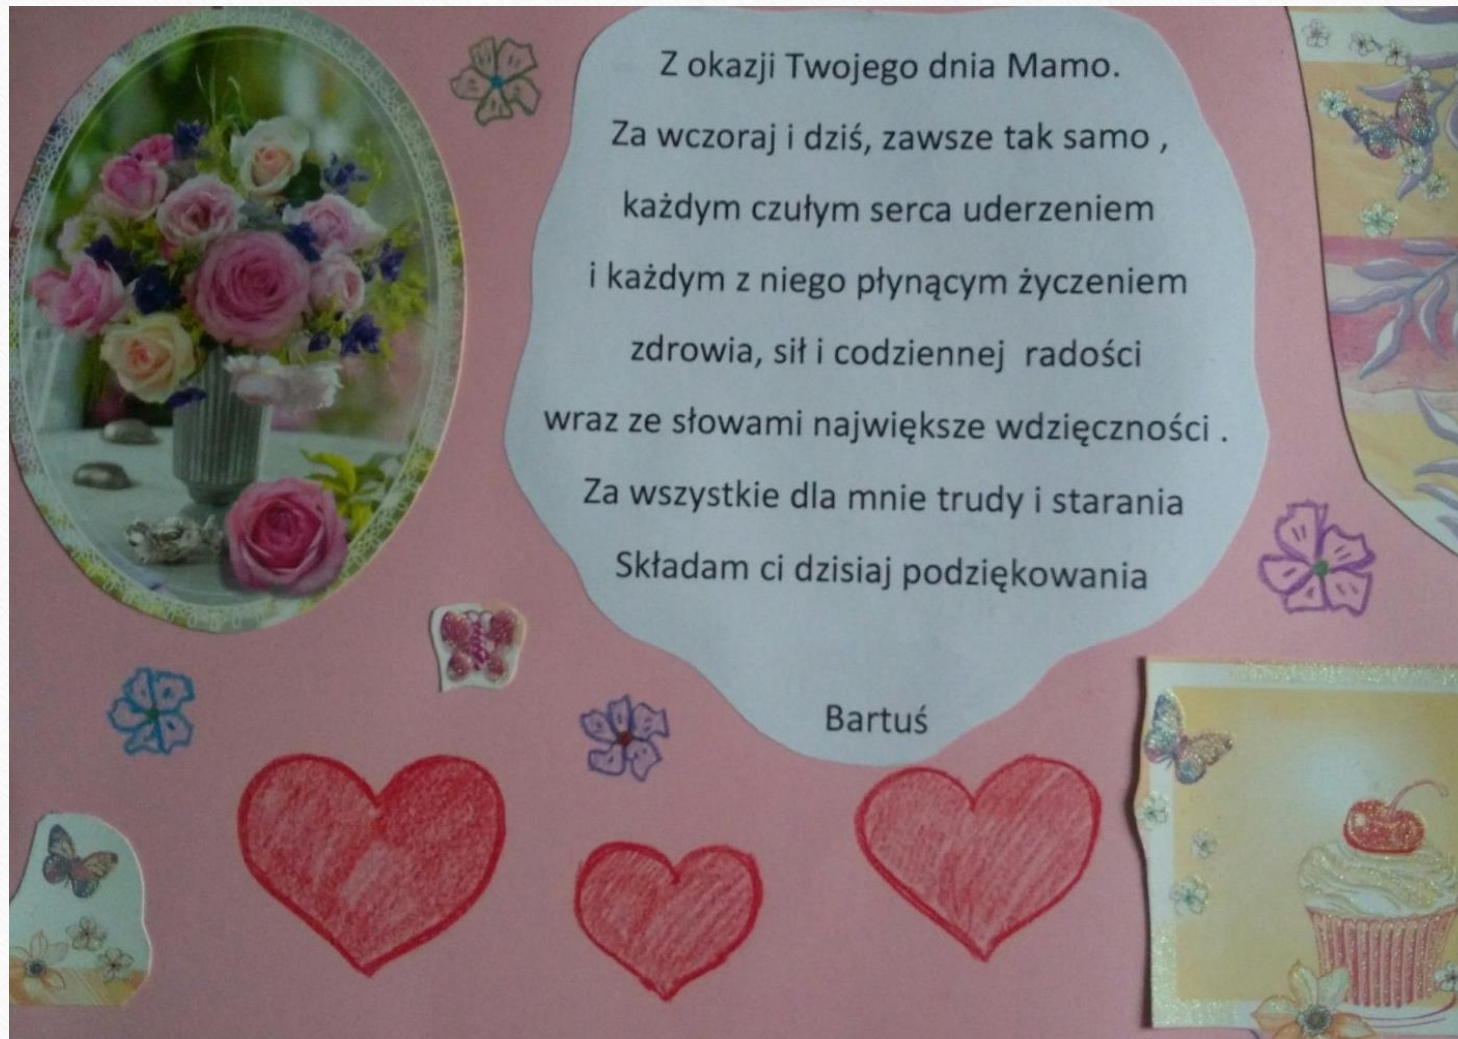 Z okazji Twojego dnia Mamo.
Za wczoraj i dziś, zawsze tak samo ,
każdym czułym serca uderzeniem
i każdym z niego płynącym życzeniem
zdrowia, sił i codziennej radości
wraz ze słowami największe wdzięczności .
Za wszystkie dla mnie trudy i starania
Składam ci dzisiaj podziękowania
Bartuś